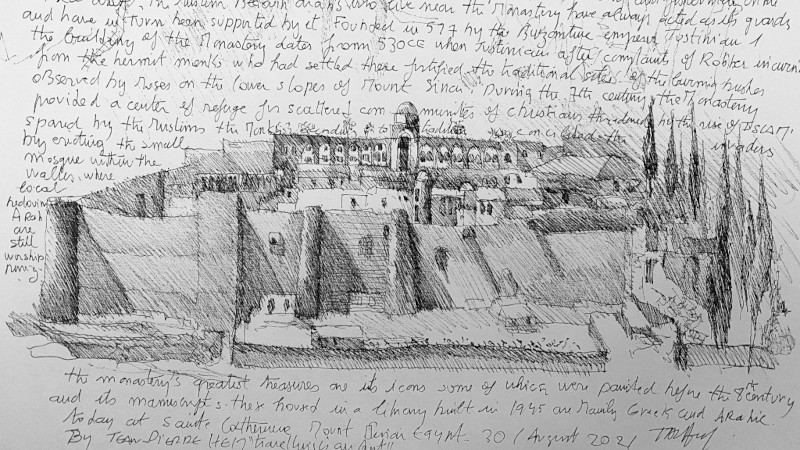 the Muslim Bedouin Arabs who live near the Monastery have always acted as its guards
and have in turn been supported by it. Founded in 527 by the Byzantine emperor Justinian I
the building of the Monastery dates from 530 CE when Justinian after complaints of Robber
from the hermit monks who had settled there fortified the traditional site of the burning bushes
observed by Moses on the lower slopes of Mount Sinai. During the 7th century the Monastery
provided a center of refuge for scattered communities of christians threatened by the rise of ISLAM.
spared by the Muslims the Monks to tradition conciliated the invaders
by erecting the small
mosque within the
walls, where
local
Bedouin
Arab
are
still
worship
ping.
the monastery's greatest treasures are its icons some of which were painted before the 8th century
and its manuscripts. these housed in a library built in 1945 are Mainly Greek and Arabic.
today at sainte Catherine Mount Sinai Egypt. 30 / August 2021
By JEAN PIERRE HEIM "traveling is an art"